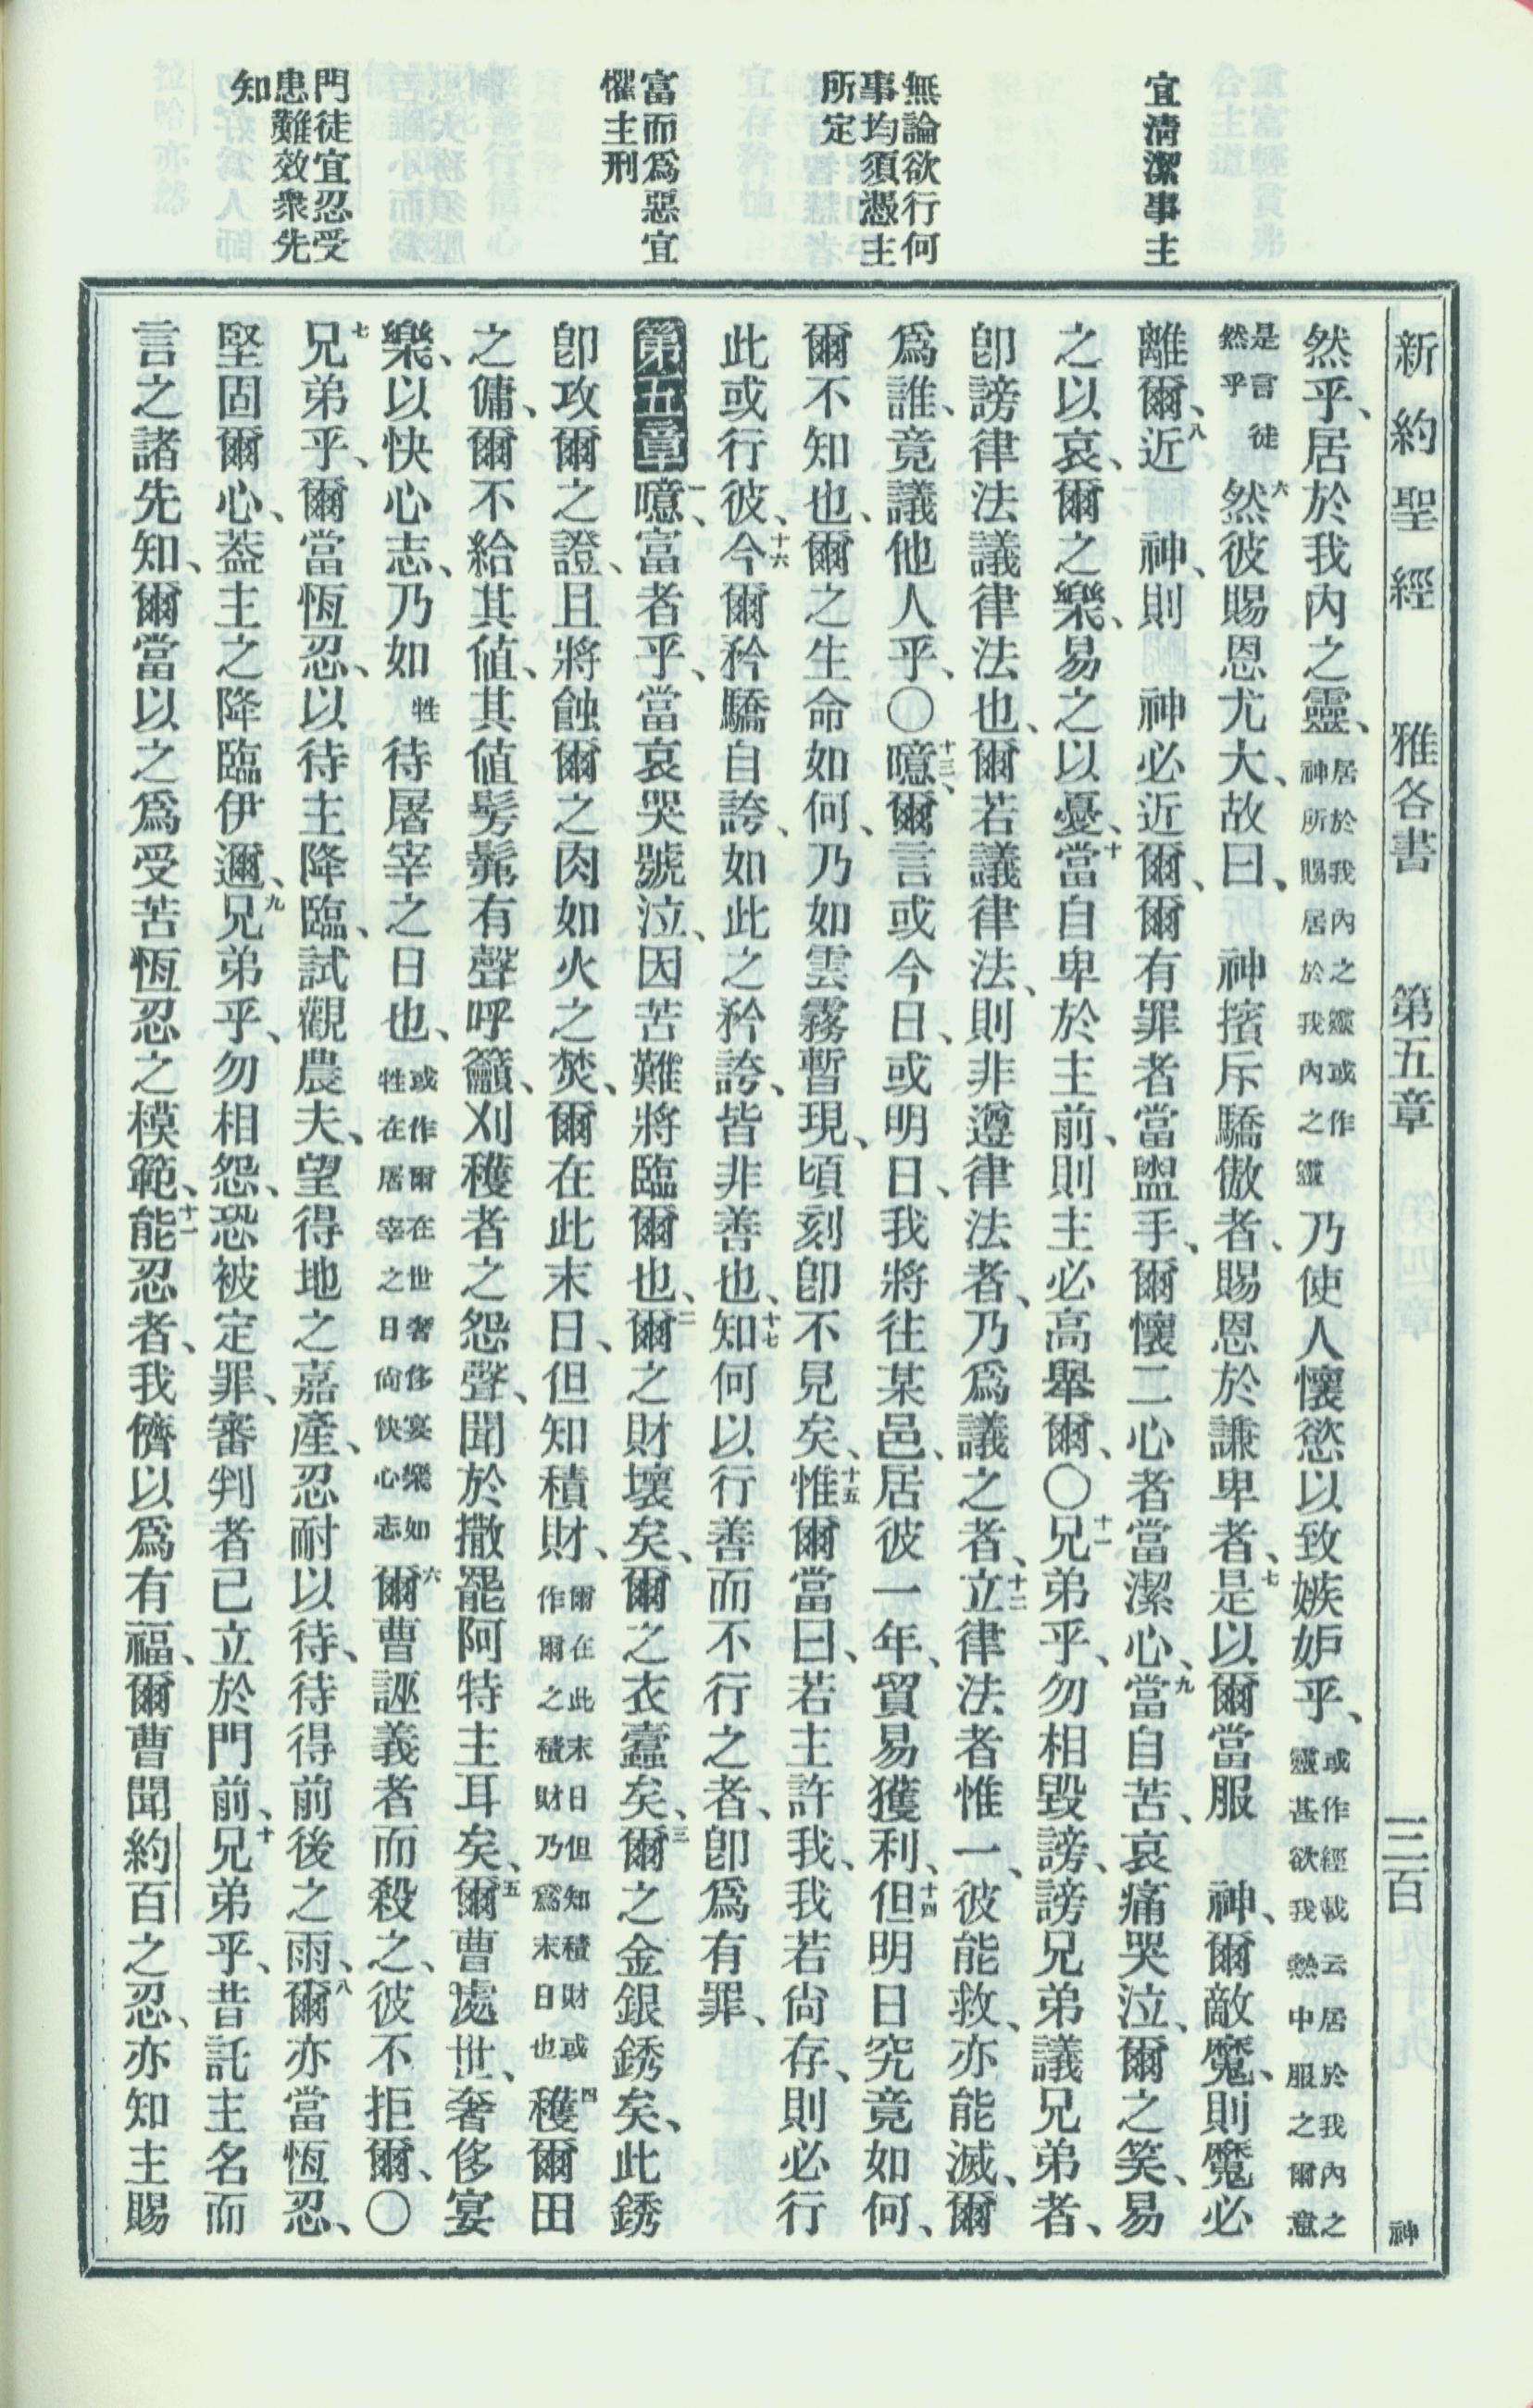 宜清潔事主
無論欲行何
事均須憑主
所定
富而爲惡宜
懼主刑
門徒宜忍受
患難效衆先
知
新約聖經 雅各書 第五章 三百 神
然乎、居於我內之靈、居於我內之靈或作神所賜居於我內之靈乃使人懷慾以致嫉妒乎、或作經載云居於我內之靈甚欲我熱中服之爾意
是言徒然乎六然彼賜恩尤大、故曰、神擯斥驕傲者、賜恩於謙卑者、七是以爾當服 神、爾敵魔、則魔必
離爾、八近 神、則 神必近爾、爾有罪者當盥手、爾懷二心者當潔心、九當自苦、哀痛哭泣、爾之笑、易
之以哀、爾之樂、易之以憂、十當自卑於主前、則主必高舉爾、〇十一兄弟乎、勿相毀謗、謗兄弟議兄弟者、
卽謗律法議律法也、爾若議律法、則非遵律法者、乃爲議之者、十二立律法者惟一、彼能救、亦能滅、爾
爲誰、竟議他人乎、〇十三噫、爾言或今日、或明日、我將往某邑、居彼一年、貿易獲利、十四但明日究竟如何、
爾不知也、爾之生命如何、乃如雲霧暫現、頃刻卽不見矣、十五惟爾當曰、若主許我、我若尙存、則必行
此或行彼、十六今爾矜驕自誇、如此之矜誇、皆非善也、十七知何以行善而不行之者、卽爲有罪、
第五章一噫、富者乎、當哀哭號泣、因苦難將臨爾也、二爾之財壞矣、爾之衣蠹矣、三爾之金銀銹矣、此銹
卽攻爾之證、且將蝕爾之肉如火之焚、爾在此末日、但知積財、爾在此末日但知積財或作爾之積財乃爲末日也四穫爾田
之傭、爾不給其値、其値髣髴有聲呼籲、刈穫者之怨聲、聞於撒罷阿特主耳矣、五爾曹處世、奢侈宴
樂、以快心志、乃如牲待屠宰之日也、或作爾在世奢侈宴樂如牲在屠宰之日尙快心志六爾曹誣義者而殺之、彼不拒爾、〇
七兄弟乎、爾當恆忍、以待主降臨、試觀農夫、望得地之嘉產、忍耐以待、待得前後之雨、八爾亦當恆忍、
堅固爾心、葢主之降臨伊邇、九兄弟乎、勿相怨、恐被定罪、審判者已立於門前、十兄弟乎、昔託主名而
言之諸先知、爾當以之爲受苦恆忍之模範、十一能忍者、我儕以爲有福、爾曹聞約百之忍、亦知主賜